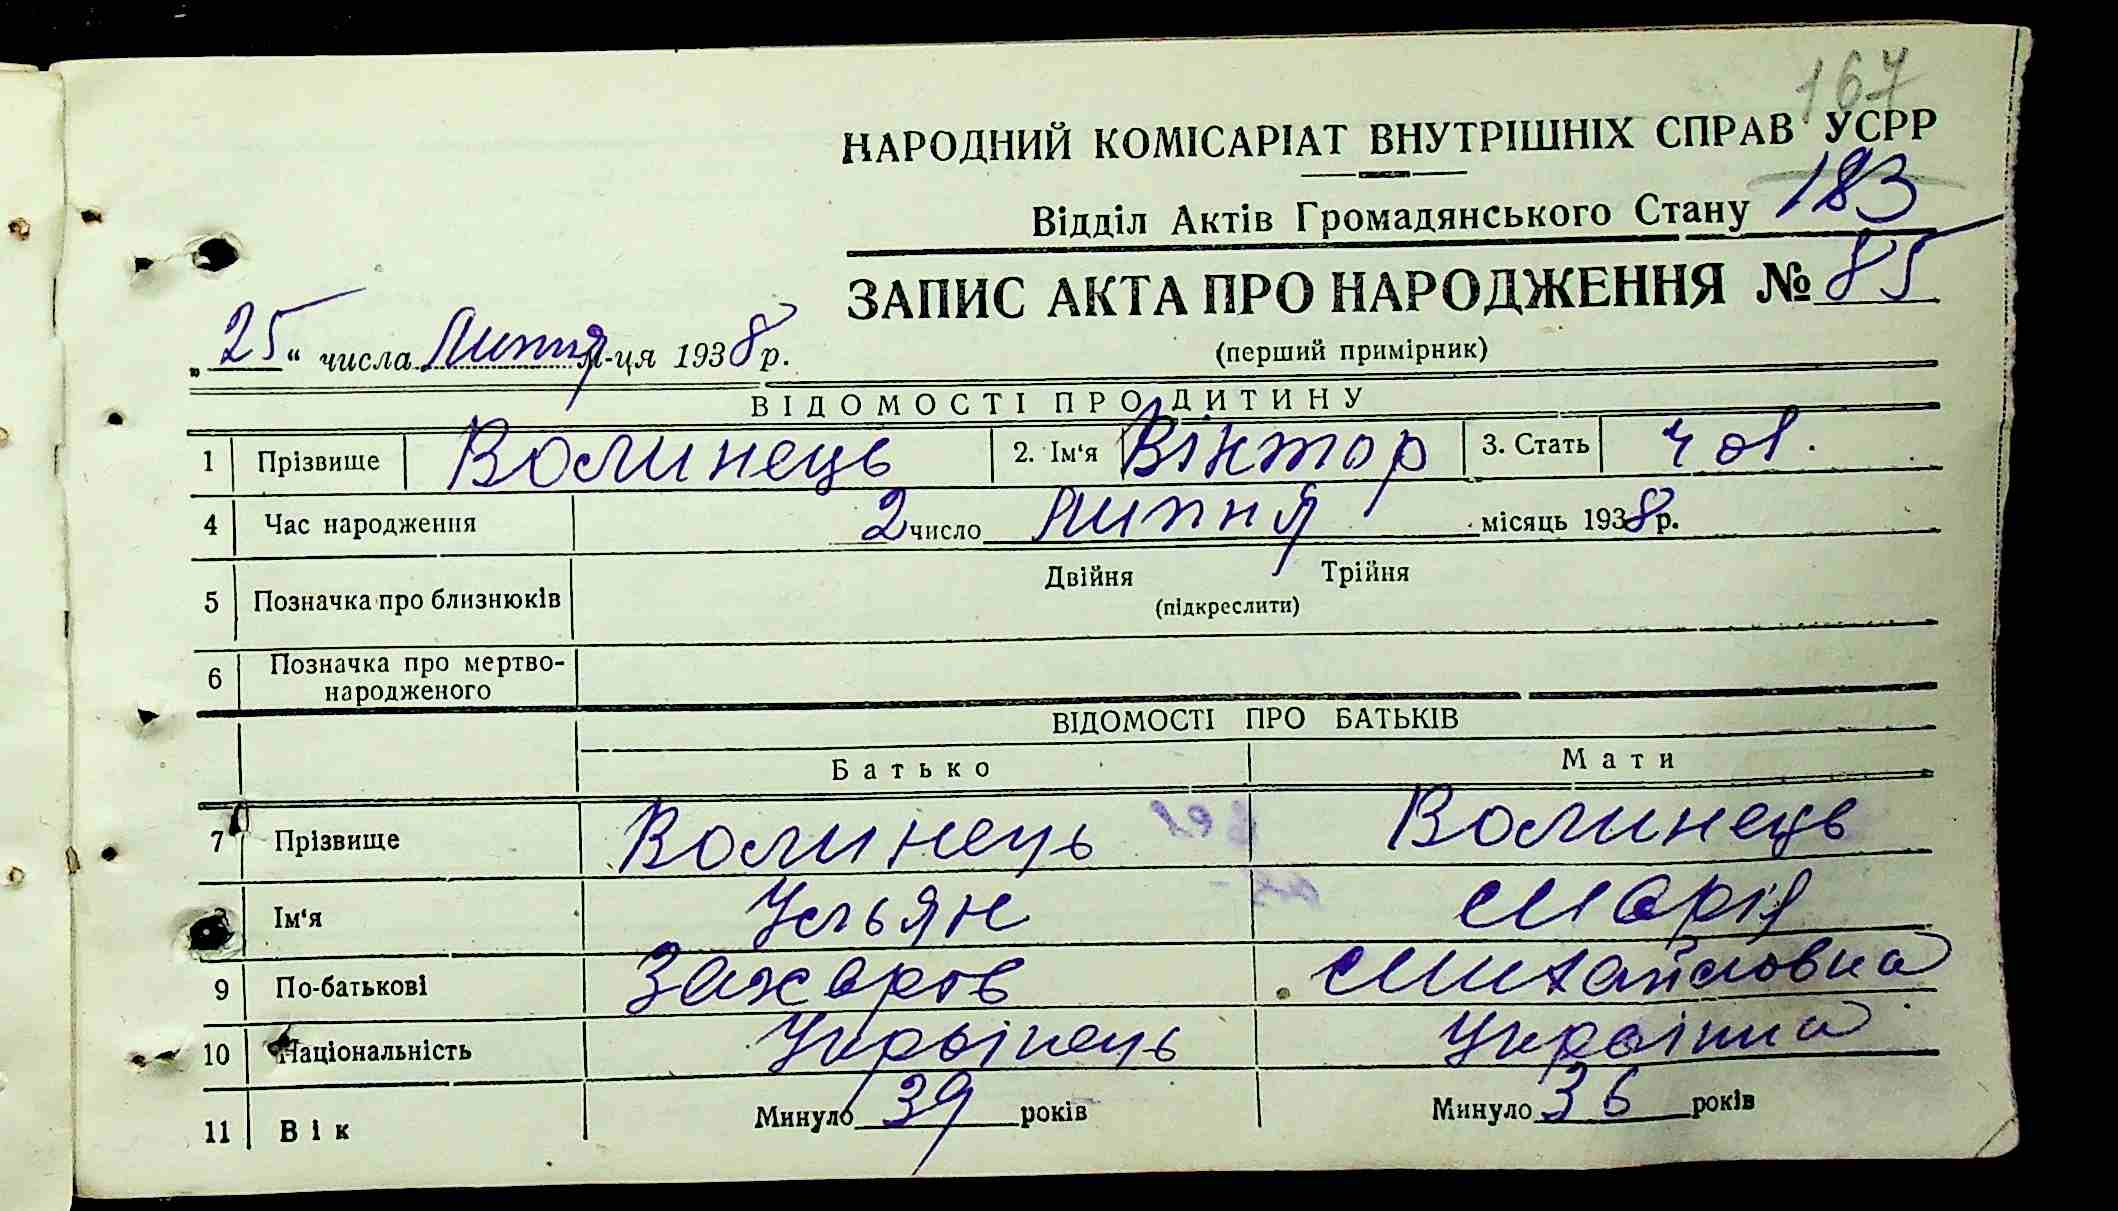 167
НАРОДНИЙ КОМІСАРІАТ ВНУТРІШНІХ СПРАВ УСРР
Відділ Актів Громадянського Стану 183
ЗАПИС АКТА ПРО НАРОДЖЕННЯ № 85
„25" числа Липня м-ця 1938 р.
(перший примірник)
ВІДОМОСТІ ПРО ДИТИНУ
1 Прізвище Волинець 2. Ім'я Віктор 3. Стать чол.
4 Час народження 2 число Липня місяць 1938 р.
5 Позначка про близнюків Двійня Трійня
(підкреслити)
6 Позначка про мертво-
народженого
ВІДОМОСТІ ПРО БАТЬКІВ
Батько Мати
7 Прізвище Волинець Волинець
8 Ім'я Ульян Марія
9 По-батькові Захаров Михайловна
10 Національність Українець Українка
11 Вік Минуло 39 років Минуло 36 років